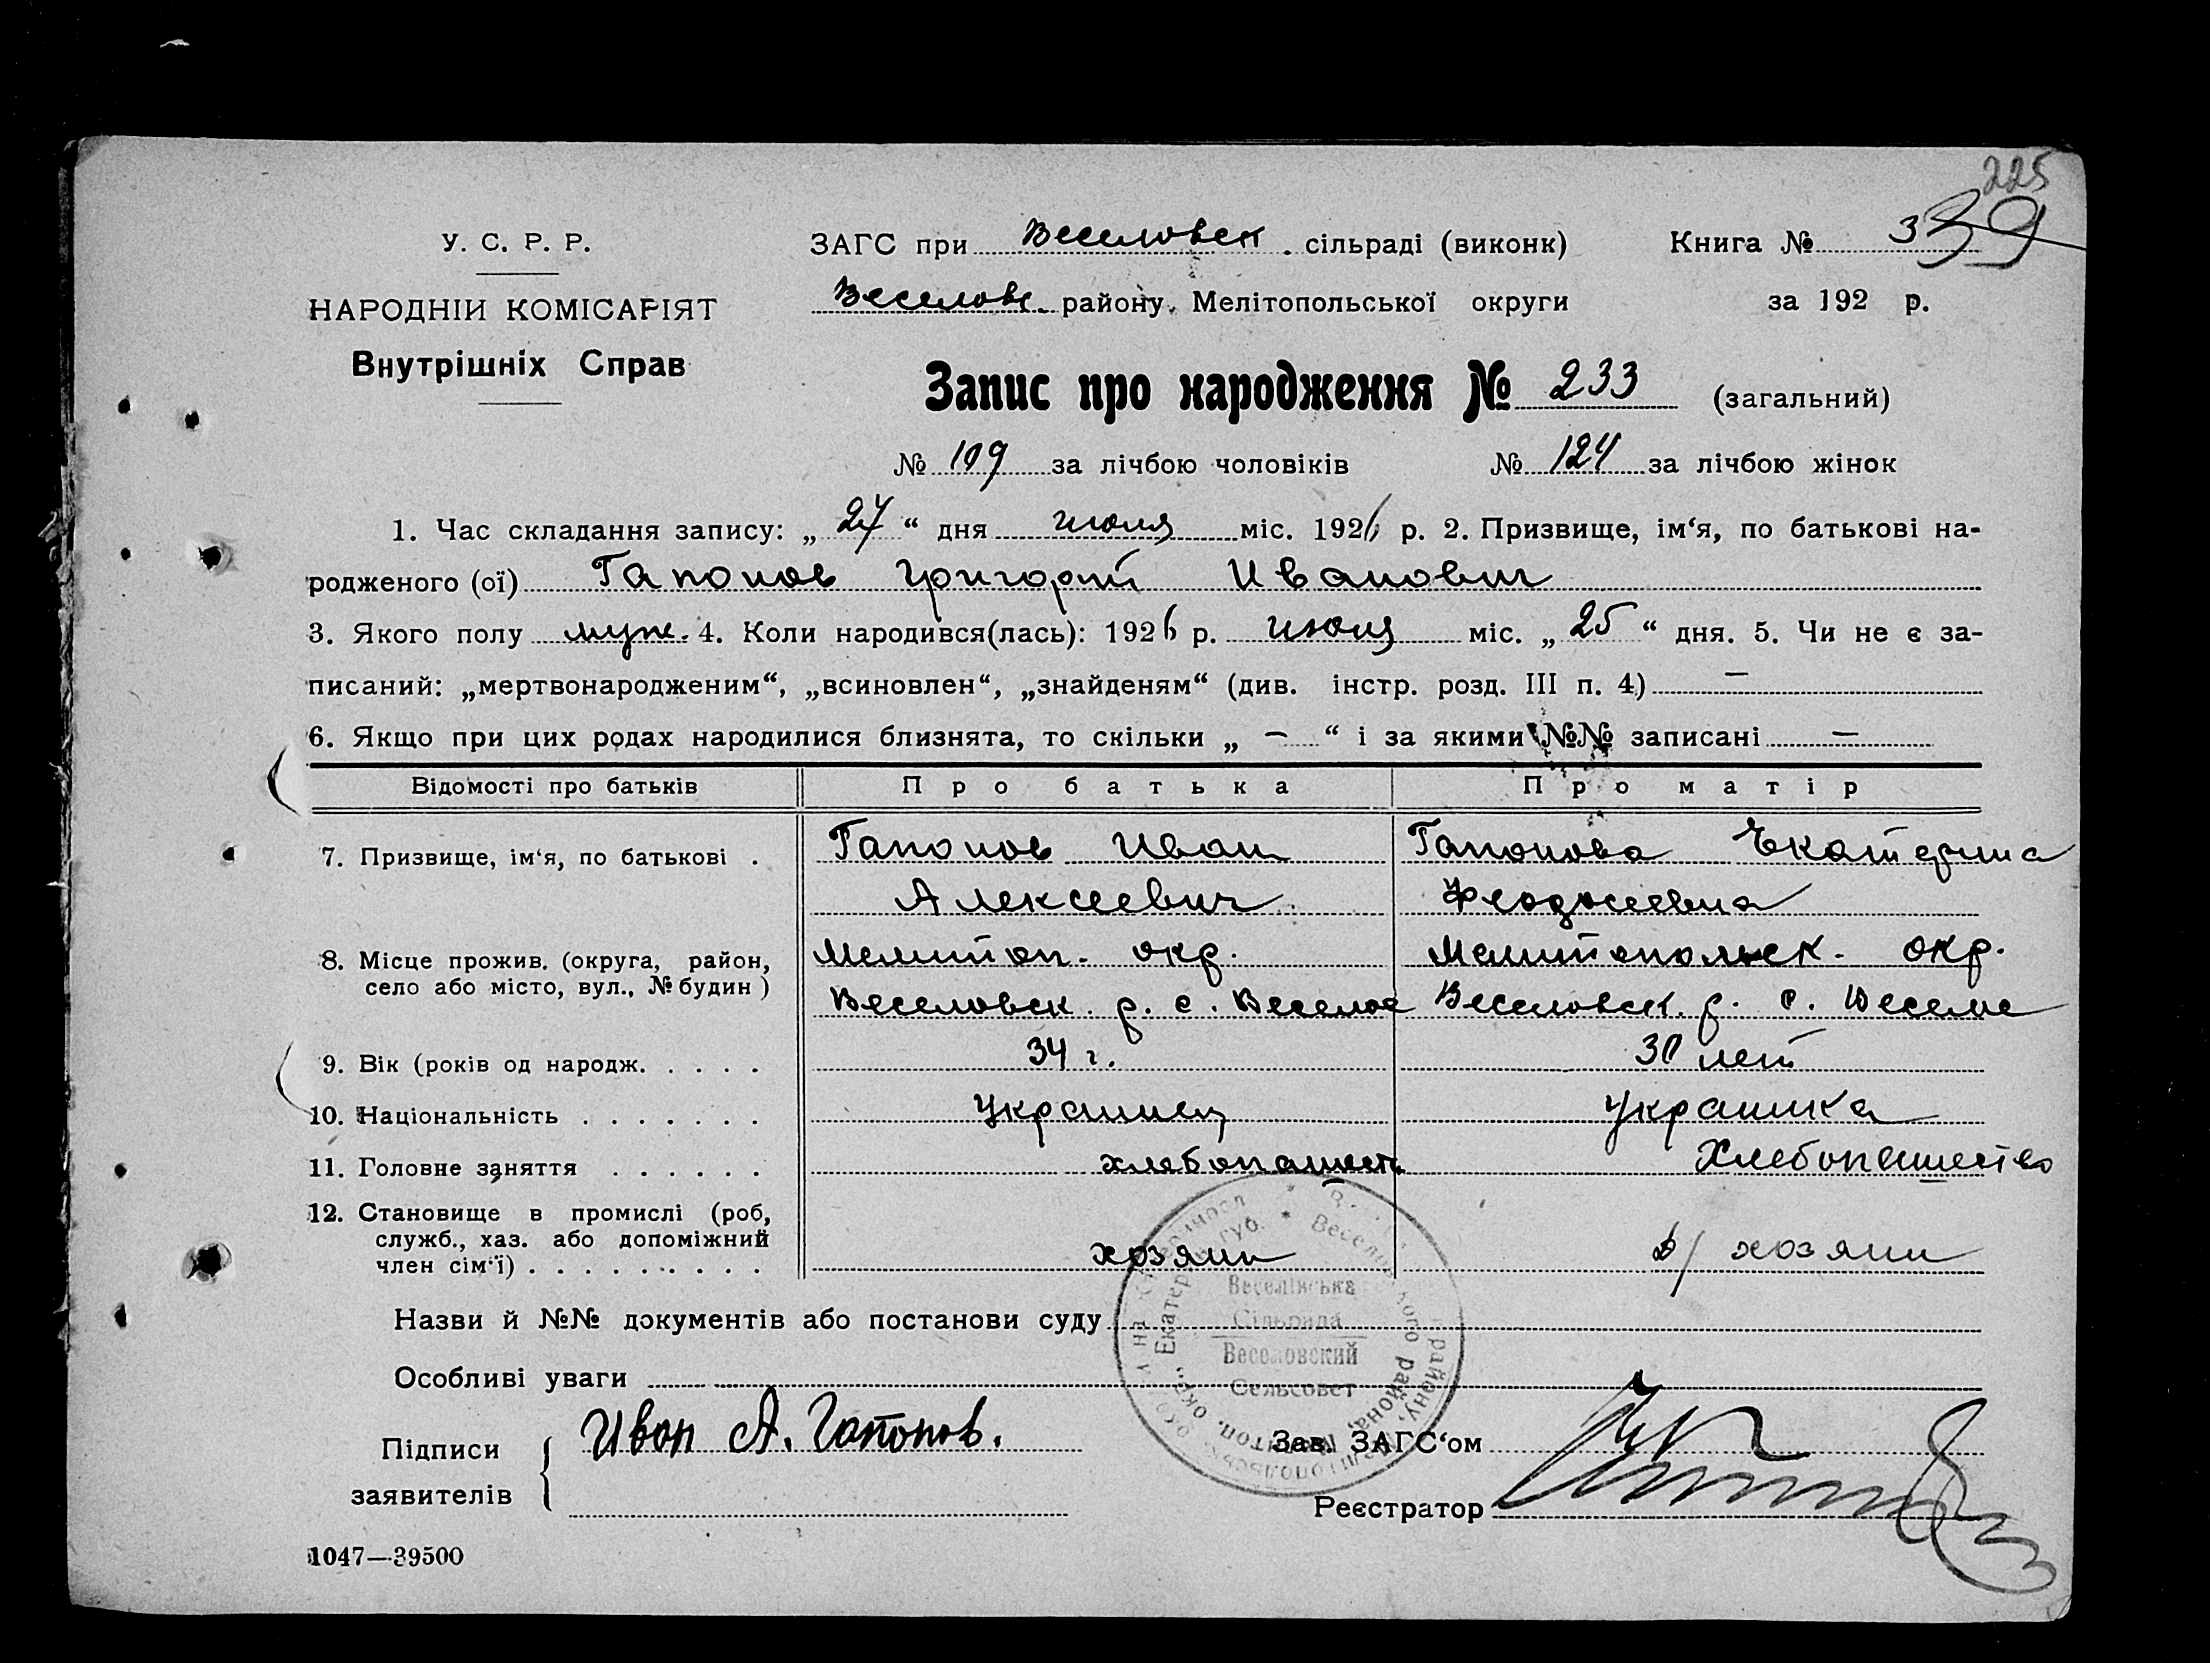 225
У. С. Р. Р.
ЗАГС при Веселовск. сільраді (виконк) Книга № 3 39
НАРОДНІЙ КОМІСАРІЯТ
Веселовс. району, Мелітопольської округи за 192 р.
Внутрішніх Справ
Запис про народження № 233 (загальний)
№ 109 за лічбою чоловіків № 124 за лічбою жінок
1. Час складання запису: „ 27 “ дня июля міс. 1926 р. 2. Призвище, ім‘я, по батькові на-
родженого (ої) Гапонов Григорий Иванович
3. Якого полу муж. 4. Коли народився(лась): 1926 р. июля міс. „ 25 “ дня. 5. Чи не є за-
писаний: „мертвонародженим“, „всиновлен“, „знайденям“ (див. інстр. розд. III п. 4) —
6. Якщо при цих родах народилися близнята, то скільки „ — “ і за якими №№ записані —
Відомості про батьків Про батька Про матір
7. Призвище, ім‘я, по батькові . Гапонов Иван Гапонова Екатерина
Алексеевич Феодосеевна
8. Місце прожив. (округа, район, Мелитоп. окр. Мелитопольск. окр.
село або місто, вул., № будин ) Веселовск. р. с. Веселое Веселовск. р. с. Веселое
9. Вік (років од народж. . . . . 34 г. 30 лет
10. Національність . . . . . . . Украинец Украинка
11. Головне заняття . . . . . . хлебопашест. Хлебопашество
12. Становище в промислі (роб,
служб., хаз. або допоміжний
член сім‘ї) . . . . . . . . . хозяин д/ хозяин
Веселівська
Сільрада
Веселовский
Сельсовет
Назви й №№ документів або постанови суду
Особливі уваги
Підписи Иван А. Гапонов. Зав. ЗАГС‘ом
заявителів Реєстратор
1047—39500